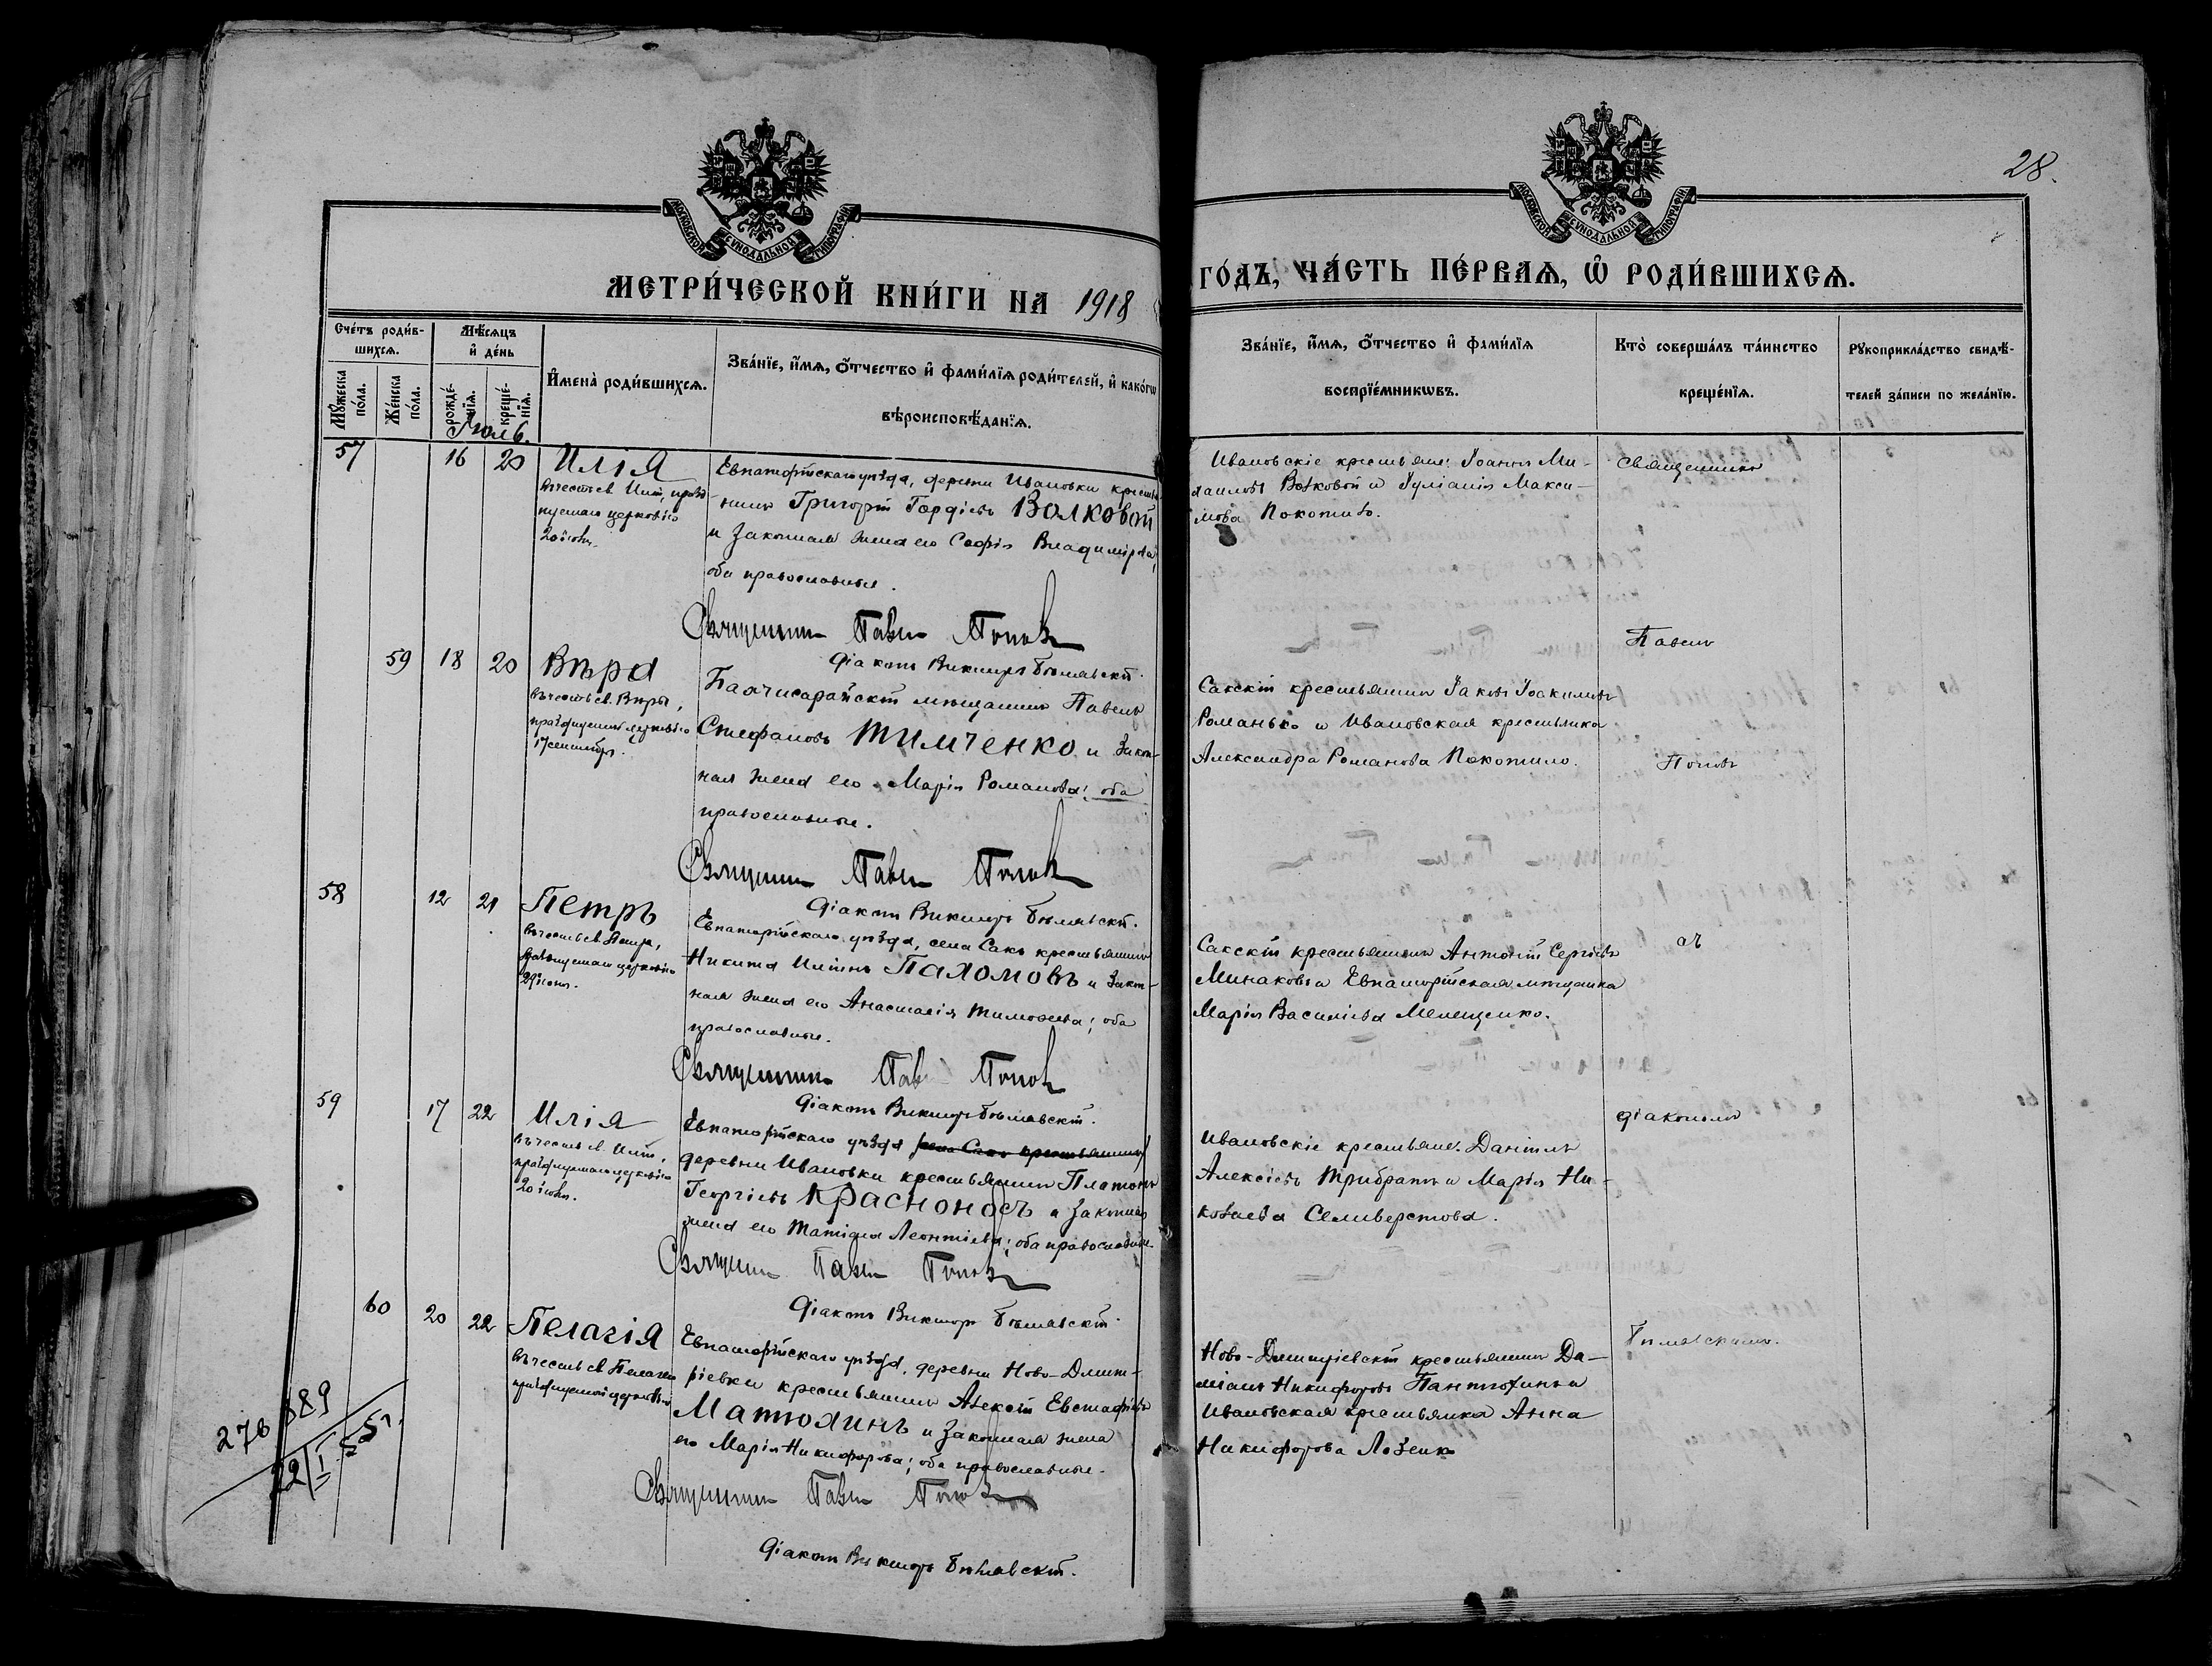 28.
МОСКОВСКОЙ СѴНОДАЛЬНОЙ ТИПОГРАФІИ
МОСКОВСКОЙ СѴНОДАЛЬНОЙ ТИПОГРАФІИ
МЕТРИ́ЧЕСКОЙ КНИ́ГИ НА 1918
ГО́ДЪ, ЧА́СТЬ ПЕ́РВАѦ, Ѽ РОДИ́ВШИХСѦ.
Сче́тъ роди́в-
шихсѧ.
Мꙋ́жеска по́ла.
Же́нска по́ла.
Мѣ́сѧцъ
и҆ де́нь
рожде́-
нїѧ.
креще́-
нїѧ.
И҆мена̀ роди́вшихсѧ.
Зва́нїе, и҆́мѧ, ѻ҆́тчество и҆ фами́лїѧ роди́телей, и҆ како́гѡ
вѣроисповѣ́данїѧ.
Зва́нїе, и҆́мѧ, ѻ҆́тчество и҆ фами́лїѧ
воспрїе́мникѡвъ.
Кто̀ соверша́лъ та́инство
креще́нїѧ.
Рꙋкоприкла́дство свидѣ́-
телей за́писи по жела́нїю.
Іюль.
57 16 20 Илія
въ честь св. Иліи, празд-
нуемаго церковію
20 іюля.
Евпаторійскаго уѣзда, деревни Ивановки кресть-
нинъ Григорій Гордіевъ Волковой
и законная жена его Софія Владимірова;
оба православные.
Священникъ Павелъ Поповъ
Діаконъ Викторъ Бѣлявскій.
Ивановскіе крестьяне: Іоаннъ Ми-
хаиловъ Волковой и Іуліанія Макси-
мова Покотило.
Священникъ
Павелъ
Поповъ
съ
діакономъ
Бѣлявскимъ.
59 18 20 Вѣра
въ честь св. Вѣры,
празднуемой церковію
17 сентября.
Бахчисарайскій мѣщанинъ Павелъ
Стефановъ Тимченко и закон-
ная жена его Марія Романова; оба
православные.
Священникъ Павелъ Поповъ
Діаконъ Викторъ Бѣлявскій.
Сакскій крестьянинъ Іаковъ Іоакимовъ
Романько и Ивановская крестьянка
Александра Романова Покотило.
58 12 21 Петръ
въ честь св. Петра,
празднуемаго церковію
29 іюня.
Евпаторійскаго уѣзда, села Сакъ крестьянинъ
Никита Иліинъ Пахомовъ и закон-
ная жена его Анастасія Тимофеева; оба
православные.
Священникъ Павелъ Поповъ
Діаконъ Викторъ Бѣлявскій.
Сакскій крестьянинъ Антоній Сергіевъ
Минаковъ и Евпаторійская мѣщанка
Марія Василіева Мелещенко.
59 17 22 Илія
въ честь св. Иліи,
празднуемаго церковію
20 іюля.
Евпаторійскаго уѣзда села Сакъ крестьянинъ
деревни Ивановки крестьянинъ Платонъ
Георгіевъ Красноносъ и законная
жена его Матрона Леонтіева; оба православные.
Священникъ Павелъ Поповъ
Діаконъ Викторъ Бѣлявскій.
Ивановскіе крестьяне: Даніилъ
Алексіевъ Трибратъ и Марія Ни-
колаева Селиверстова.
60 20 22 Пелагія
въ честь св. Пелагіи
празднуемой церковію
Евпаторійскаго уѣзда, деревни Ново-Димит-
ріевки крестьянинъ Алексій Евстафіевъ
Матюхинъ и законная жена
его Марія Никифорова; оба православные.
Священникъ Павелъ Поповъ
Діаконъ Викторъ Бѣлявскій.
Ново-Димитріевскій крестьянинъ Да-
міанъ Никифоровъ Пантюхинъ и
Ивановская крестьянка Анна
Никифорова Лозенко
276 389
22/I 51.